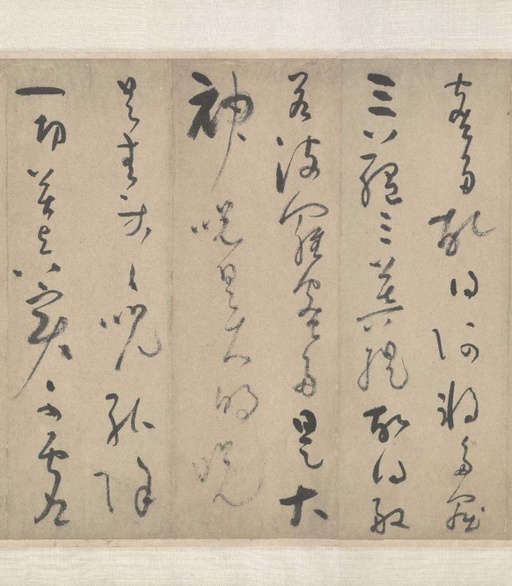 蜜多故得阿耨多羅
三藐三菩提故知般
若波羅蜜多是大
神呪是大明呪
是無等々呪能除
一切苦真實不虛